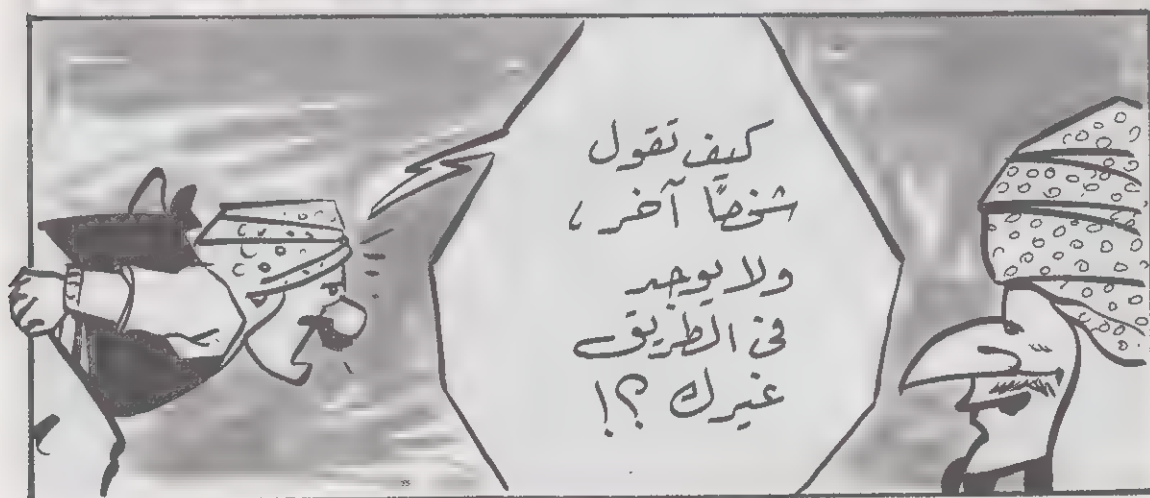 كيف تقول
شخصًا آخر،
ولا يوجد
فى الطريق
غيرك؟!